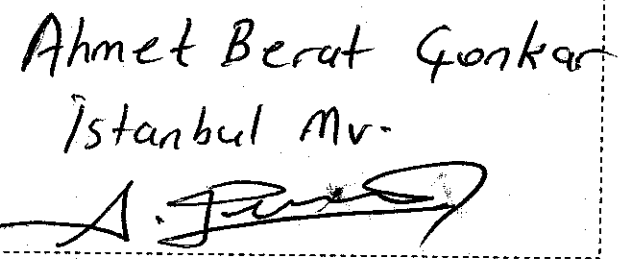 Ahmet Berat Çonkar
İstanbul Mv.